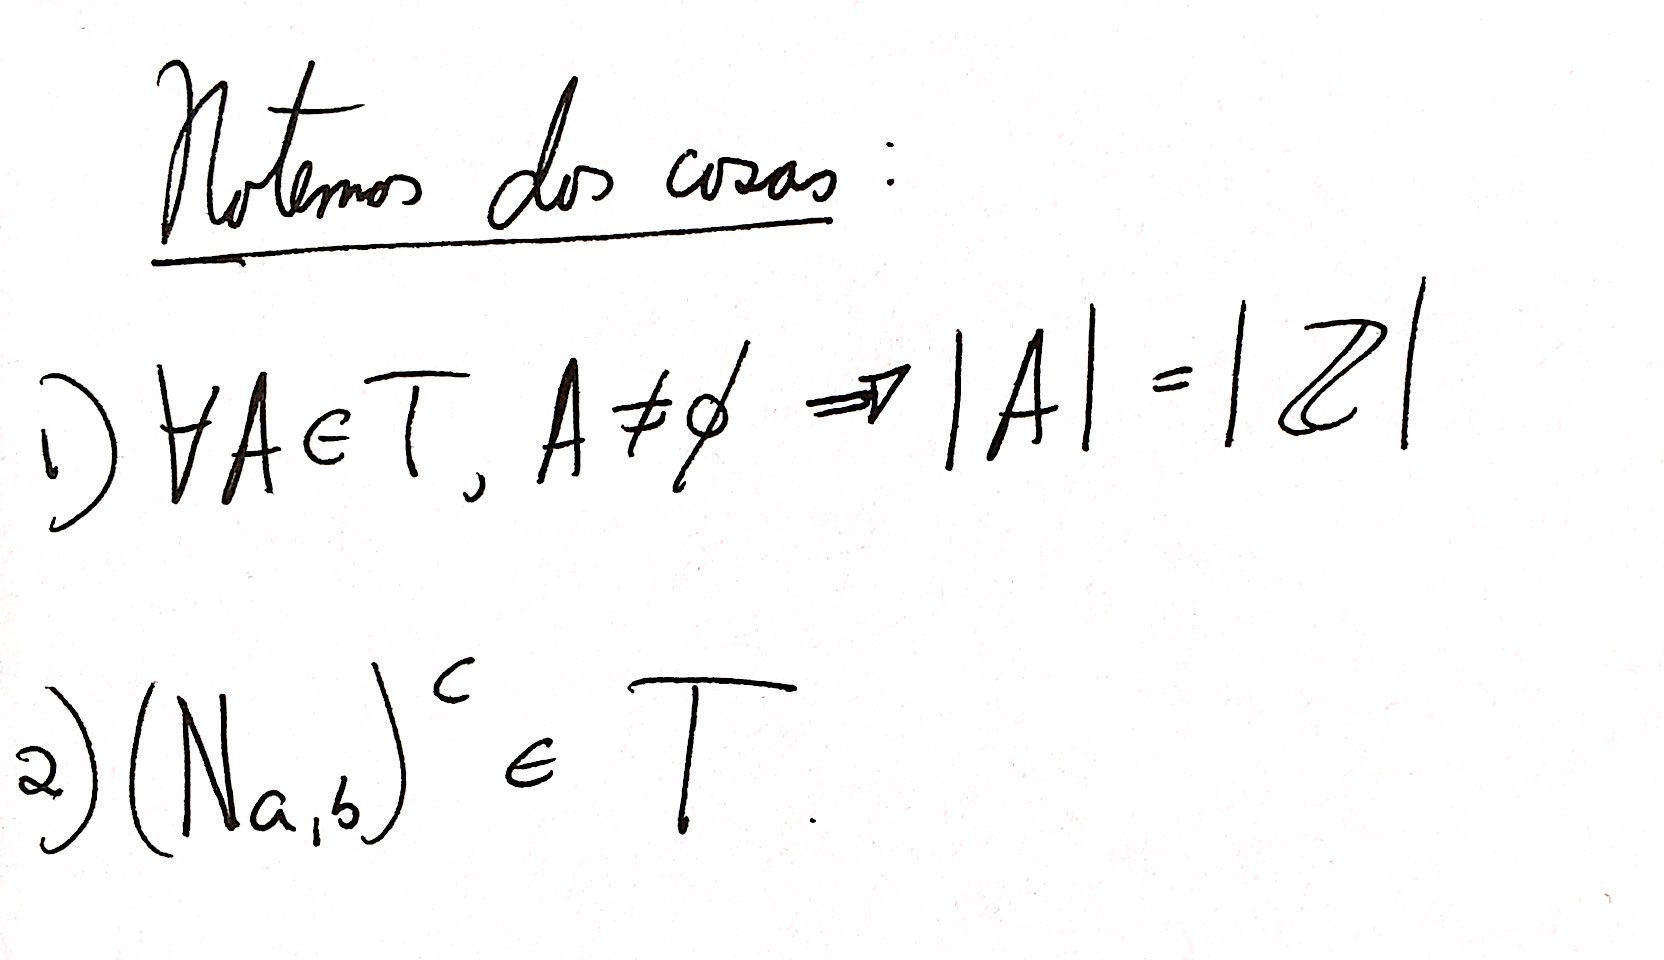 Notemos dos cosas:
1) ∀A∈T, A≠∅ ⇒ |A| = |ℤ|
2) (N_{a,b})^c ∈ T.